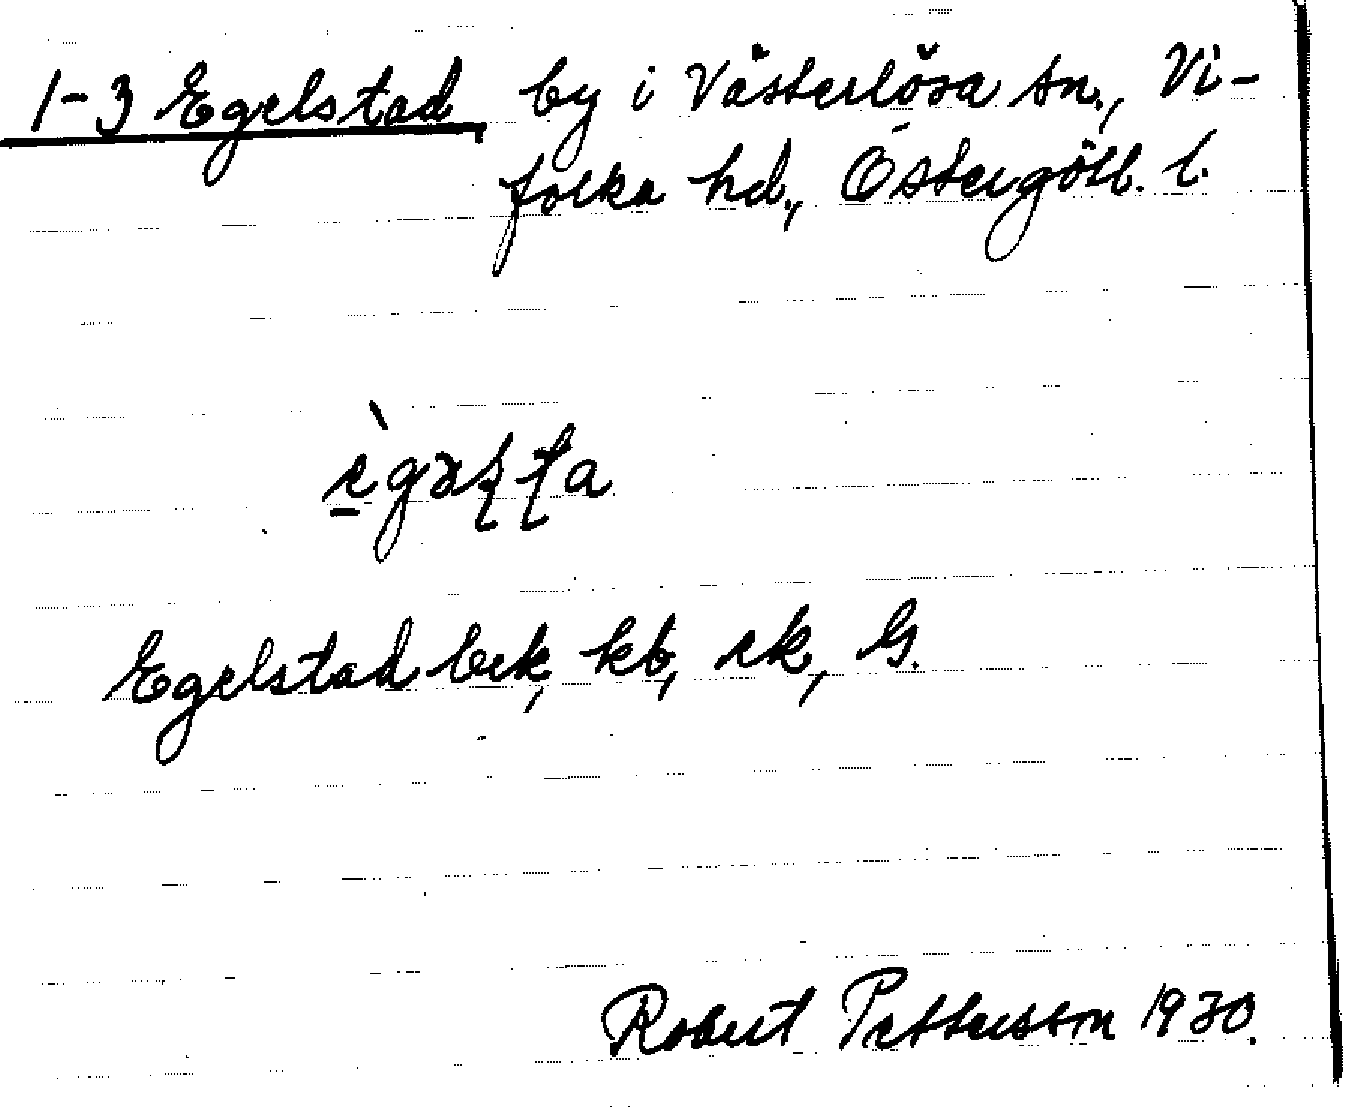 1-3 Egelstad, by i Västerlösa sn., Vi-
folka hd., Östergötl. l.
Egelstad bek, kb, ek, G.
Robert Pettersson 1930.